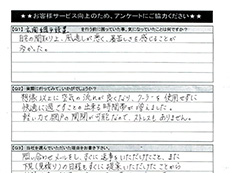 ★★お客様サービス向上のため、アンケートにご協力ください★★
自宅の間取り上、風通しが悪く、蒸し暑さを感じることが
多かった。
想像以上に空気の流れが良くなり、クーラーを使用せずに
快適に過ごすことの出来る時間帯が増えました。
軽い力で網戸の開閉が可能なので、ストレスもありません。
問い合わせメールをし、すぐに返事をいただけたこと、また
下見(見積り)の日程もすぐに提案いただけたことから